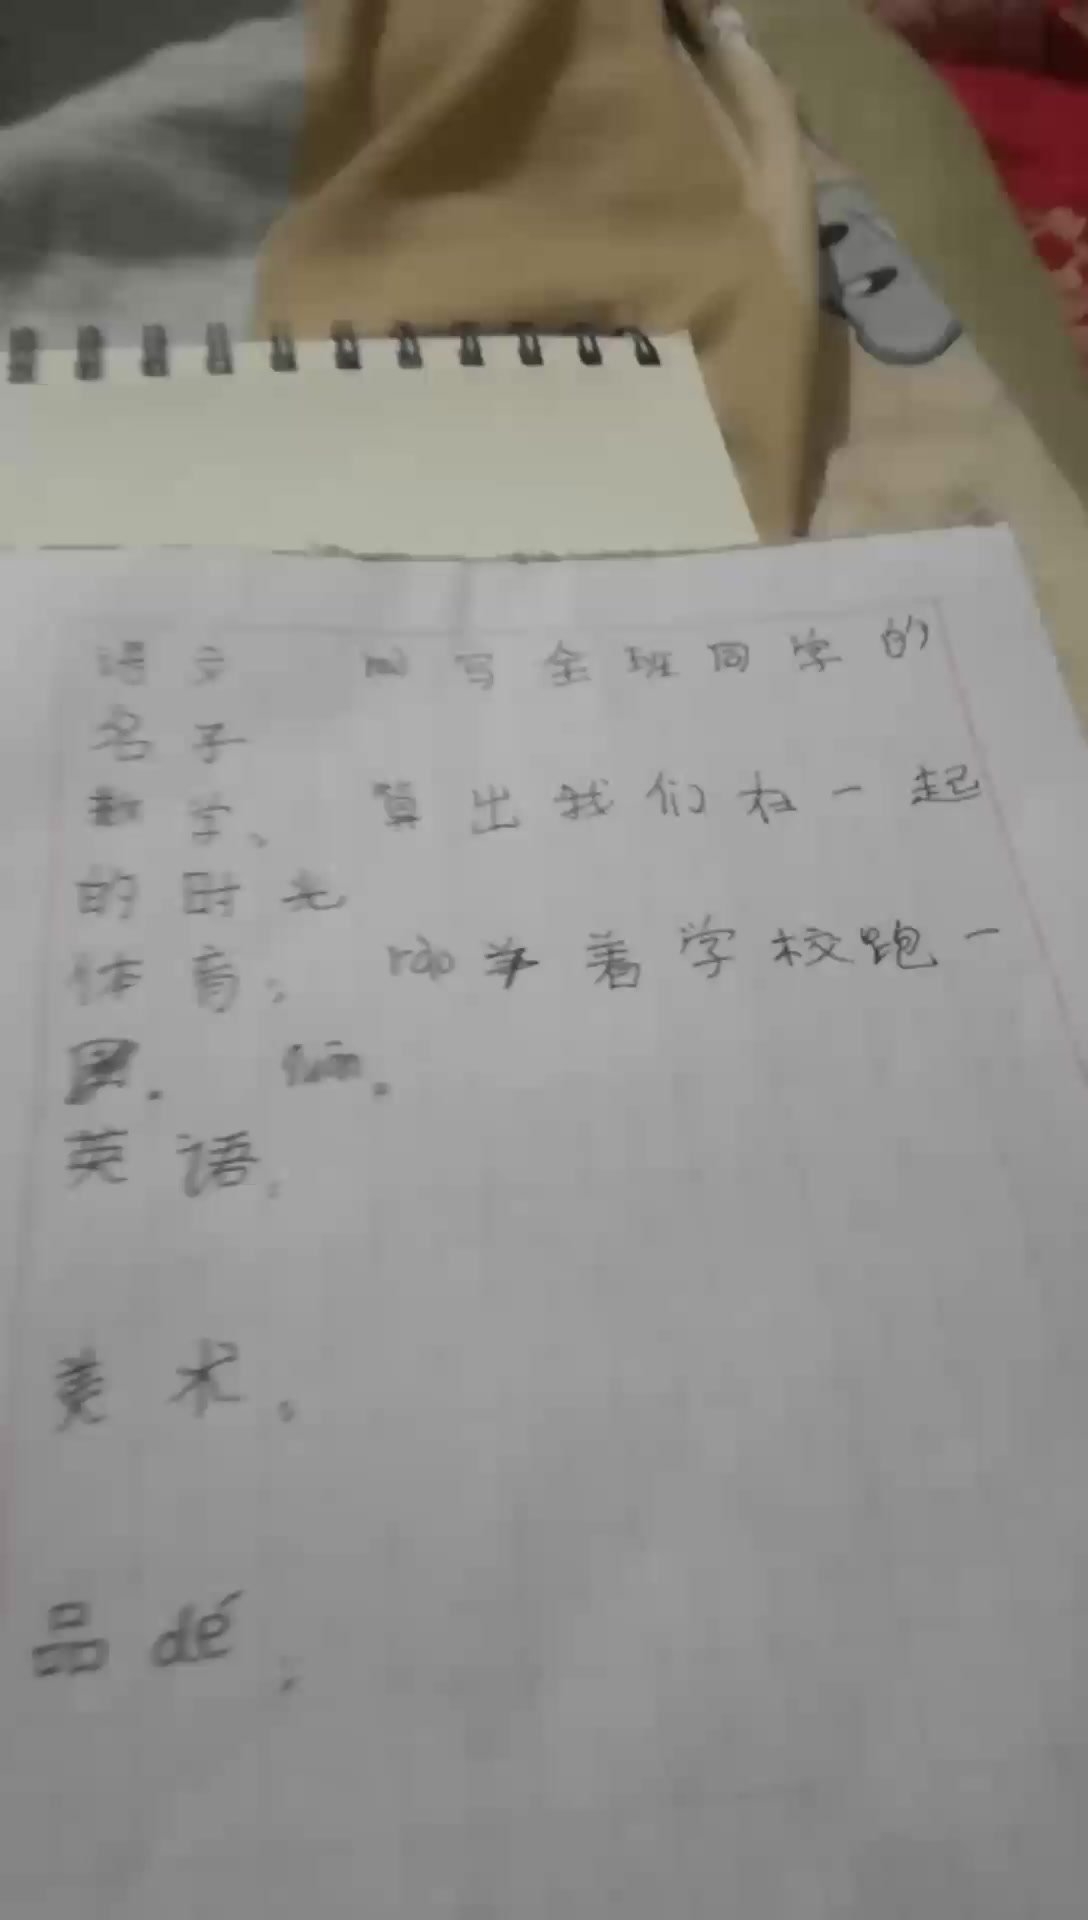 语文 mo写全班同学的
名子
数学。 算出我们在一起
的时光
体育: rào 着学校跑一
quān。
英语:
美术:
品dé: